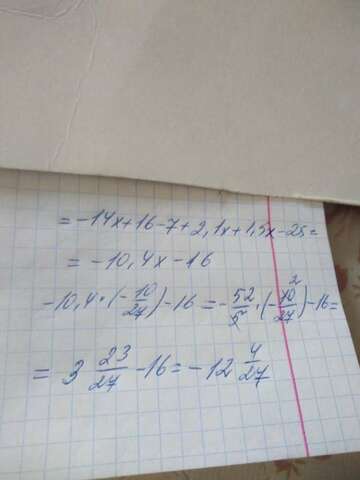 = -14x+16-7+2,1x+1,5x-25=
= -10,4x-16
-10,4·(-10/27)-16=-52/5·(-10/27)-16=
2
= 3 23/27 -16=-12 4/27